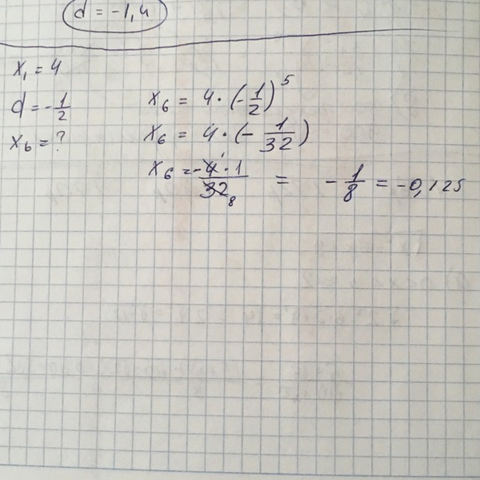 d = -1,4
x₁ = 4
d = -1/2
x₆ = ?
x₆ = 4 · (-1/2)⁵
x₆ = 4 · (-1/32)
x₆ = -4¹ · 1/32₈ = -1/8 = -0,125